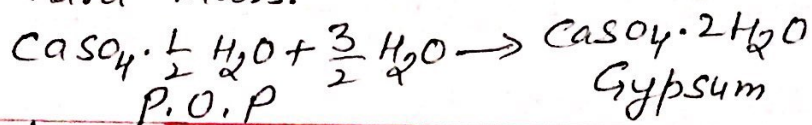 CaSO₄·½ H₂O + 3/2 H₂O → CaSO₄·2H₂O
P.O.P Gypsum